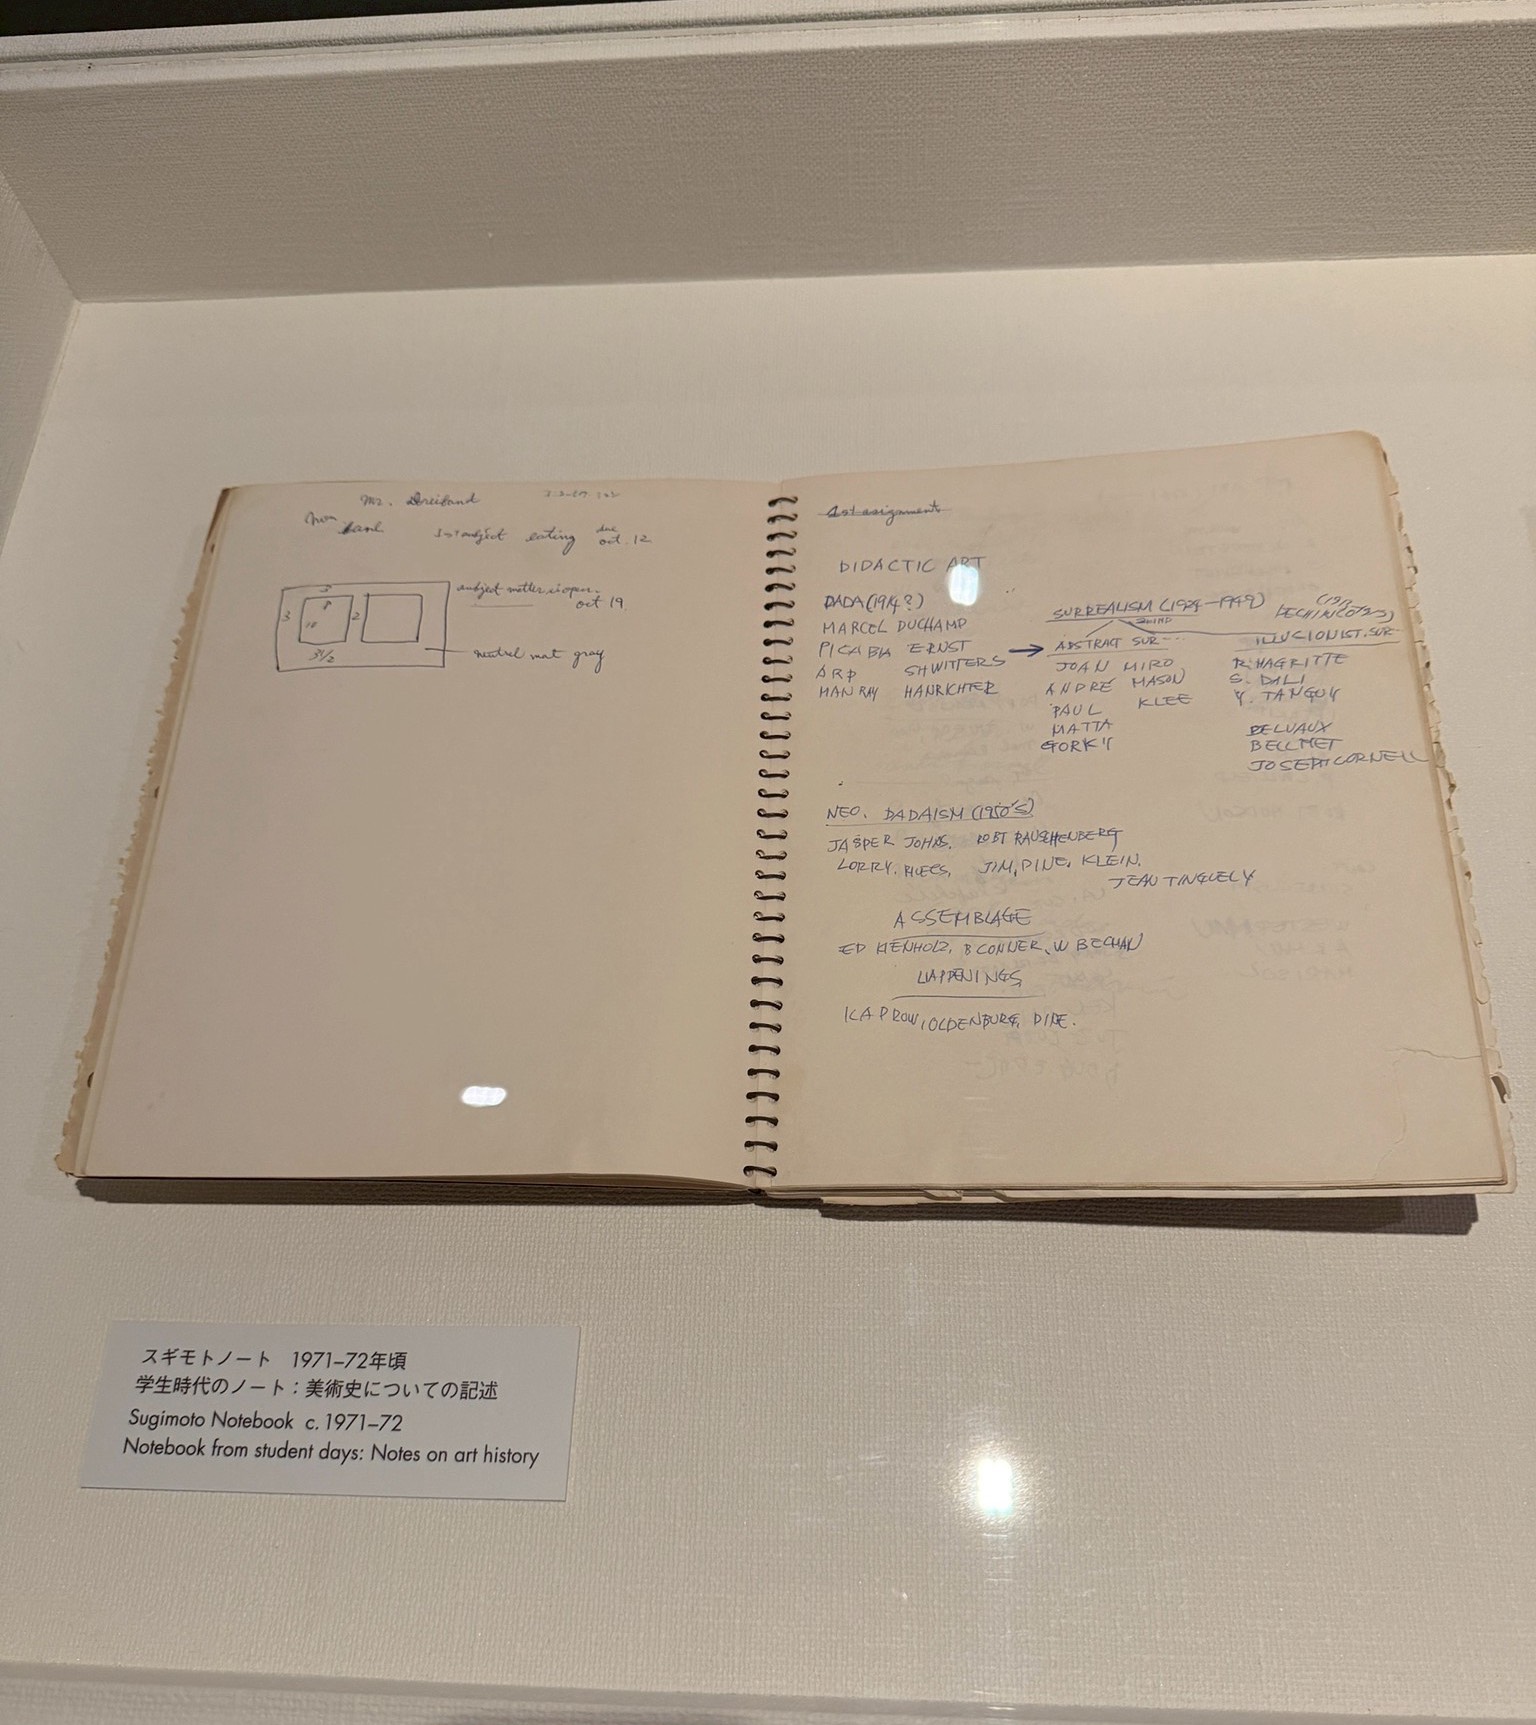 Mr.
1st subject eating due oct. 12
subject matter is open.
oct 19
3 2
3 1/2
neutral mat gray
1st assignment
DIDACTIC ART
DADA (1914?)
MARCEL DUCHAMP
PICABIA ERNST
ARP SHWITTERS
MAN RAY HANRICHTER
SURREALISM (1924-1949)
ABSTRACT SUR
JOAN MIRO
ANDRÉ MASON
PAUL KLEE
MATTA
GORKY
ILLUSIONIST. SUR
R. MAGRITTE
S. DALI
Y. TANGUY
DELVAUX
BELLMET
JOSEPH CORNELL
NEO. DADAISM (1950'S)
JASPER JOHNS. ROBT RAUSCHENBERG
LORRY. JIM, DINE, KLEIN.
JEAN TINGUELY
ASSEMBLAGE
ED KIENHOLZ, B CONNER, W BECMAN
HAPPENINGS
KAPROW, OLDENBURG, DINE.
スギモトノート 1971–72年頃
学生時代のノート：美術史についての記述
Sugimoto Notebook c. 1971–72
Notebook from student days: Notes on art history